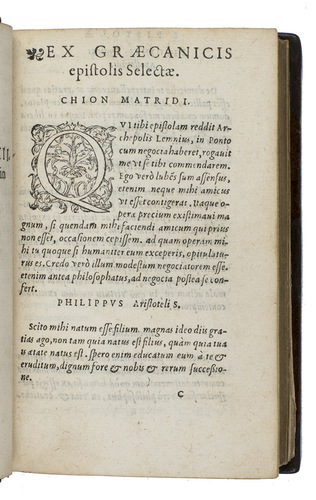 EX GRÆCANICIS
epistolis Selectæ.
CHION MATRIDI.
QVI tibi epistolam reddit Ar-
chepolis Lemnius, in Ponto
cum negocia haberet, rogauit
me vt se tibi commendarem.
Ego verò lubẽs sum assensus,
etenim neque mihi amicus
vt esset contigerat. Itaque o-
pera precium existimaui ma
gnum, si quendam mihi faciendi amicum qui prius
non esset, occasionem cepissem. ad quam operam mi-
hi tu quoque si humaniter eum exceperis, opitulatu-
rus es. Credo verò illum modestum negociatorem esse.
etenim antea philosophatus, ad negocia postea se con-
fert.
PHILIPPVS Aristoteli S.
Scito mihi natum esse filium. magnas ideo diis gra-
tias ago, non tam quia natus est filius, quàm quia tua
ætate natus est. spero enim educatum eum à te &
eruditum, dignum fore & nobis & rerum successio-
ne.
C